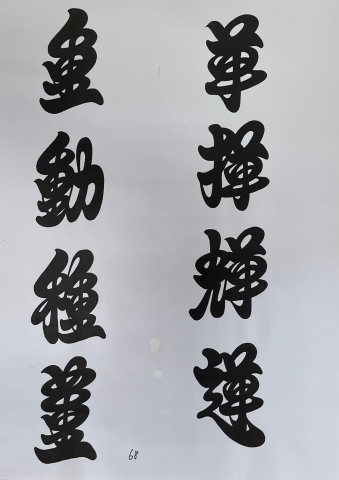 軍揮輝運
重動種董
68